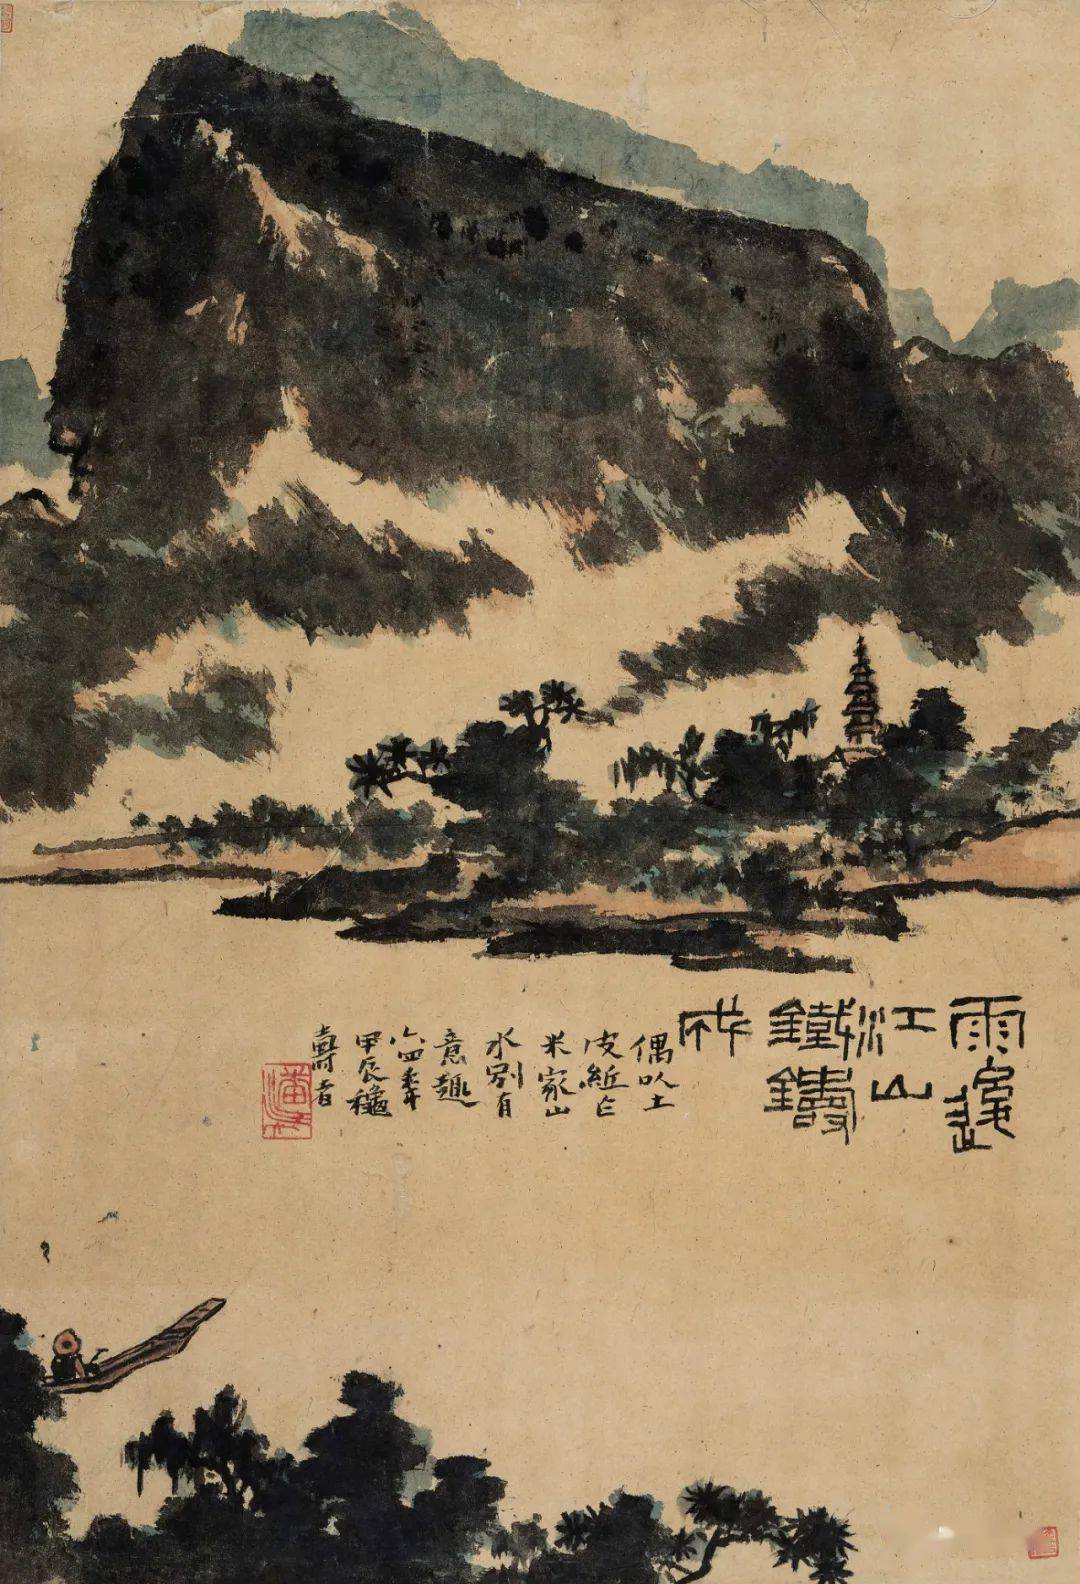 雨後
江山
鐵鑄
成
偶以土
皮紙乍
米家山
水別有
意趣
六四年
甲辰穐
壽者